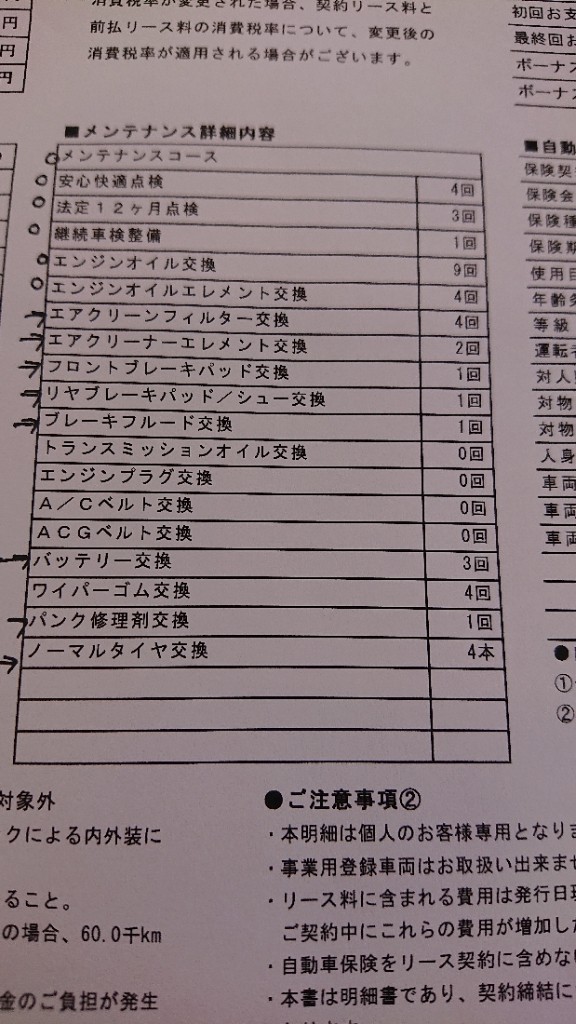 円
円
円
消費税率が変更された場合、契約リース料と
前払リース料の消費税率について、変更後の
消費税率が適用される場合がございます。
初回お支
最終回お
ボーナス
ボーナス
■メンテナンス詳細内容
メンテナンスコース
安心快適点検 4回
法定12ヶ月点検 3回
継続車検整備 1回
エンジンオイル交換 9回
エンジンオイルエレメント交換 4回
エアクリーンフィルター交換 4回
エアクリーナーエレメント交換 2回
フロントブレーキパッド交換 1回
リヤブレーキパッド/シュー交換 1回
ブレーキフルード交換 1回
トランスミッションオイル交換 0回
エンジンプラグ交換 0回
A/Cベルト交換 0回
ACGベルト交換 0回
バッテリー交換 3回
ワイパーゴム交換 4回
パンク修理剤交換 1回
ノーマルタイヤ交換 4本
■自動
保険契
保険会
保険種
保険期
使用目
年齢条
等級
運転者
対人
対物
対物
人身
車両
車両
車両
●
①
②
対象外
クによる内外装に
ること。
の場合、60.0千km
金のご負担が発生
●ご注意事項②
・本明細は個人のお客様専用となりま
・事業用登録車両はお取扱い出来ませ
・リース料に含まれる費用は発行日現
ご契約中にこれらの費用が増加した
・自動車保険をリース契約に含めない
・本書は明細書であり、契約締結に